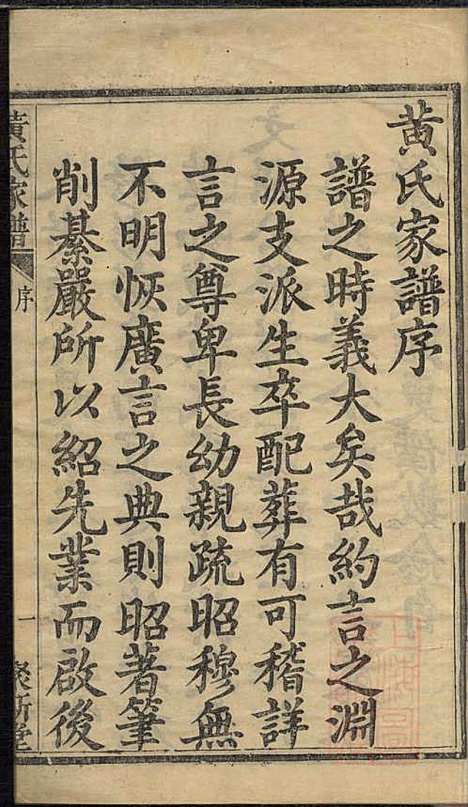 黄氏家譜序
譜之時義大矣哉約言之淵
源支派生卒配葬有可稽詳
言之尊卑長幼親疏昭穆無
不明恢廣言之典則昭著筆
削綦嚴所以紹先業而啟後
黃氏家譜
序
一